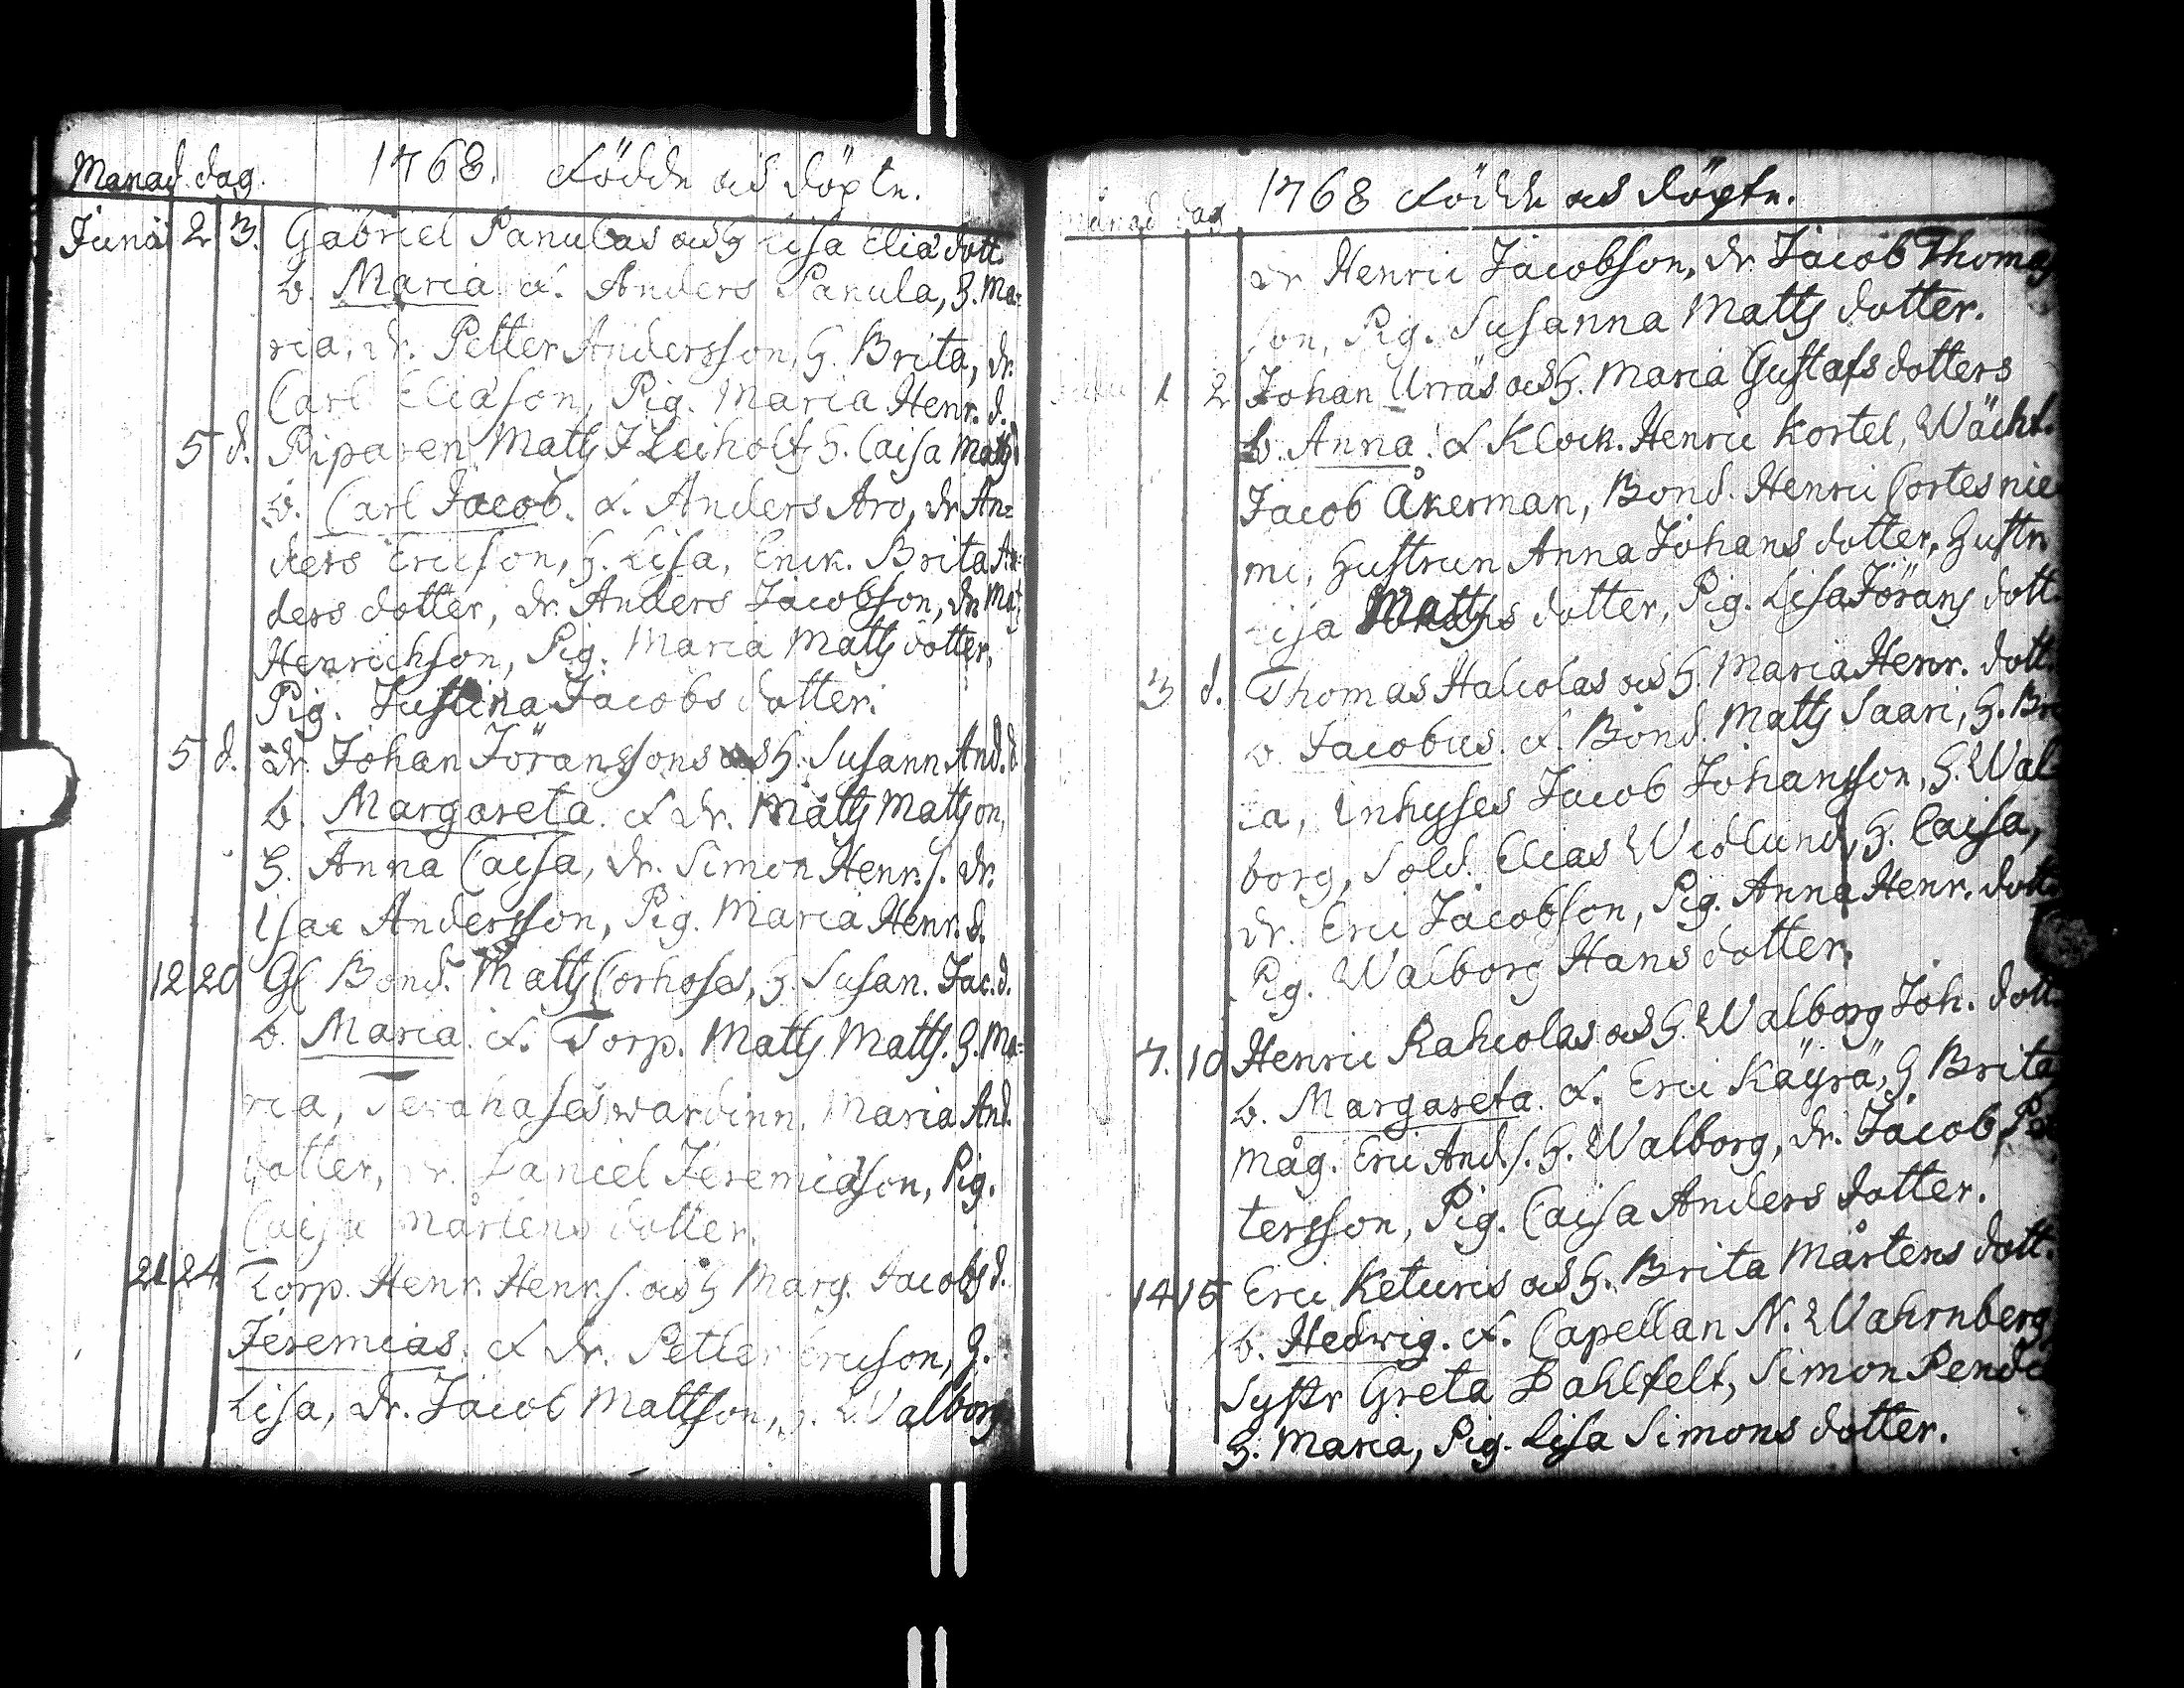 Manad dag. 1768. Födde och döpte.
Junii 2 3. Gabriel Panulas och H Lisa Eliæ dott.
b. Maria. f. Anders Panula, H. Ma=
ria, dr. Petter Andersson, H. Brita, dr.
Carl Eliæson, Pig. Maria Henr. d.
5 d. Matts H. Caisa Matts d
b. Carl Jacob. f. Anders Aro, dr An=
ders Ericson, H. Lisa, Enk. Brita An=
ders dotter, dr. Anders Jacobson, dr Mat
Henrichson, Pig. Maria Matts dotter,
Pig. Justina Jacobs dotter.
5 d. dr. Johan Jöranssons och H. Susann And. d
b. Margareta. f dr. Matts Mattson,
H. Anna Caisa, dr. Simon Henr. s. dr.
Isac Andersson, Pig. Maria Henr. d.
12 20 Gl Bond. Matts Corhoses, H. Susan. Jac. d.
b. Maria. f. Torp. Matts Matts. H. Ma=
ria, Maria And.
dotter, dr. Daniel Jeremiæson, Pig.
Caisa Mårtens dotter.
21 24. Torp. Henr. Henr. s. och H Marg. Jacobs d.
Jeremias. f dr. Petter Ericson, H.
Lisa, dr. Jacob Mattsson, H. Walborg
Månad dag 1768 Födde och döpte.
dr Henric Jacobson, dr Jacob Thomas
son, Pig. Susanna Matts dotter.
1 2 Johan Urräs och H. Maria Gustafs dotters
b. Anna. f Klock. Henric Kortel, Wächt.
Jacob Åkerman, Bond. Henric Cortesnie
mi, Hustrun Anna Johans dotter, Hustr.
Lisa Matts dotter, Pig. Lisa Jörans dott.
3 d. Thomas Halcolas och H. Maria Henr. dott.
b. Jacobus. f. Bond. Matts Saari, H. Bri
ta, Inhyses Jacob Johansson, H. Wal
borg, Sold. Elias Widlund, H. Caisa,
dr. Eric Jacobson, Pig. Anna Henr. dott.
Pig. Walborg Hans dotter.
7. 10 Henric Rahcolas och H. Walborg Joh. dott.
b. Margareta. f. Eric Käyrä, H Brita
måg. Eric And. s. H. Walborg, dr. Jacob Pe
tersson, Pig. Caisa Anders dotter.
14 15 Eric Keturis och H. Brita Mårtens dott.
b. Hedwig. f. Capellan N. Wahrnberg
Systr Greta Dahlfelt, Simon
H. Maria, Pig. Lisa Simons dotter.